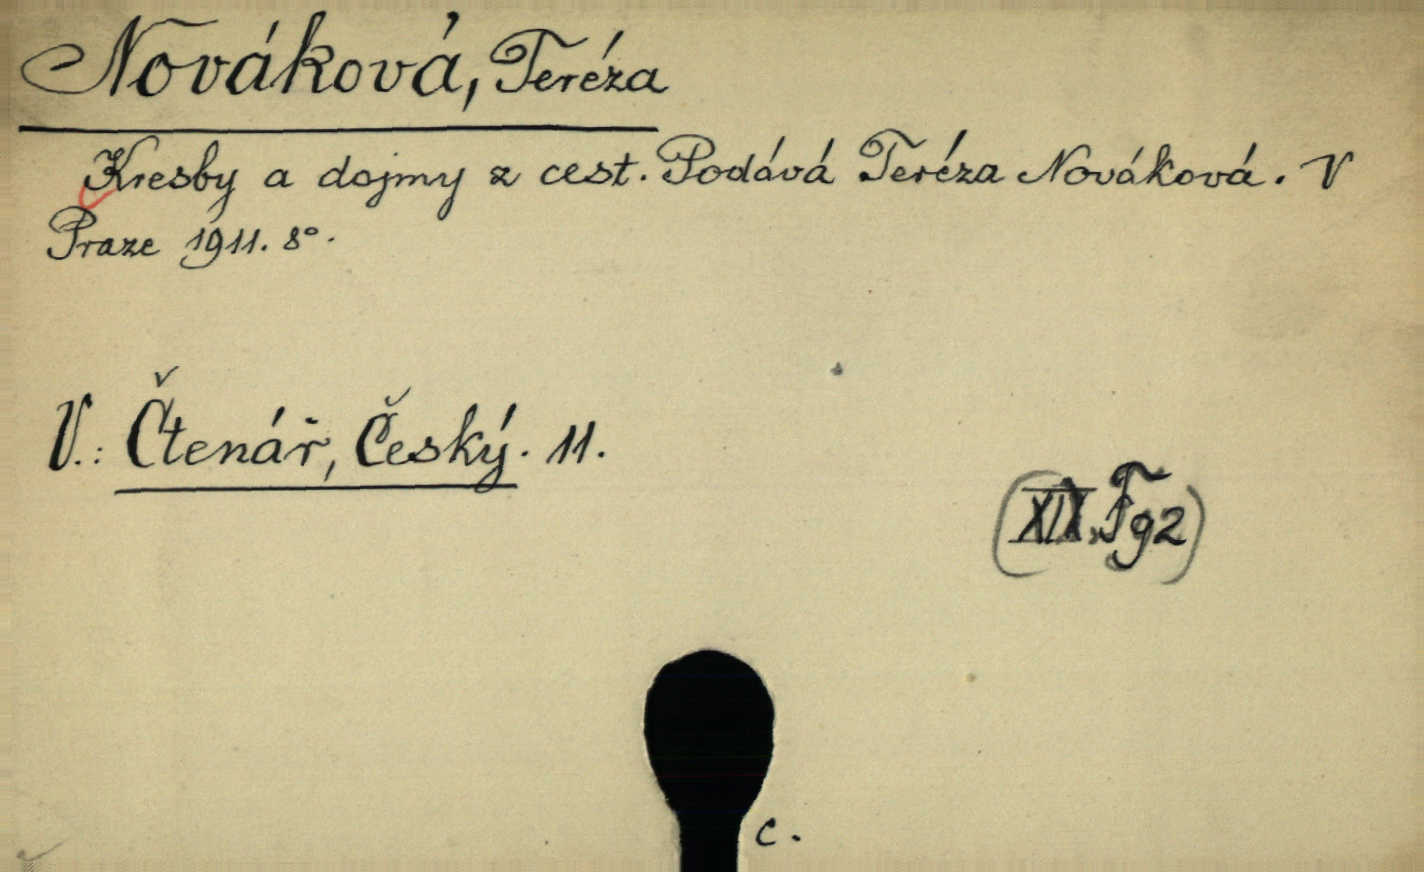 Nováková, Teréza
Kresby a dojmy z cest. Podává Teréza Nováková. V
Praze 1911. 8°.
V.: Čtenář, Český. 11.
(XIX.Fg2)
c.